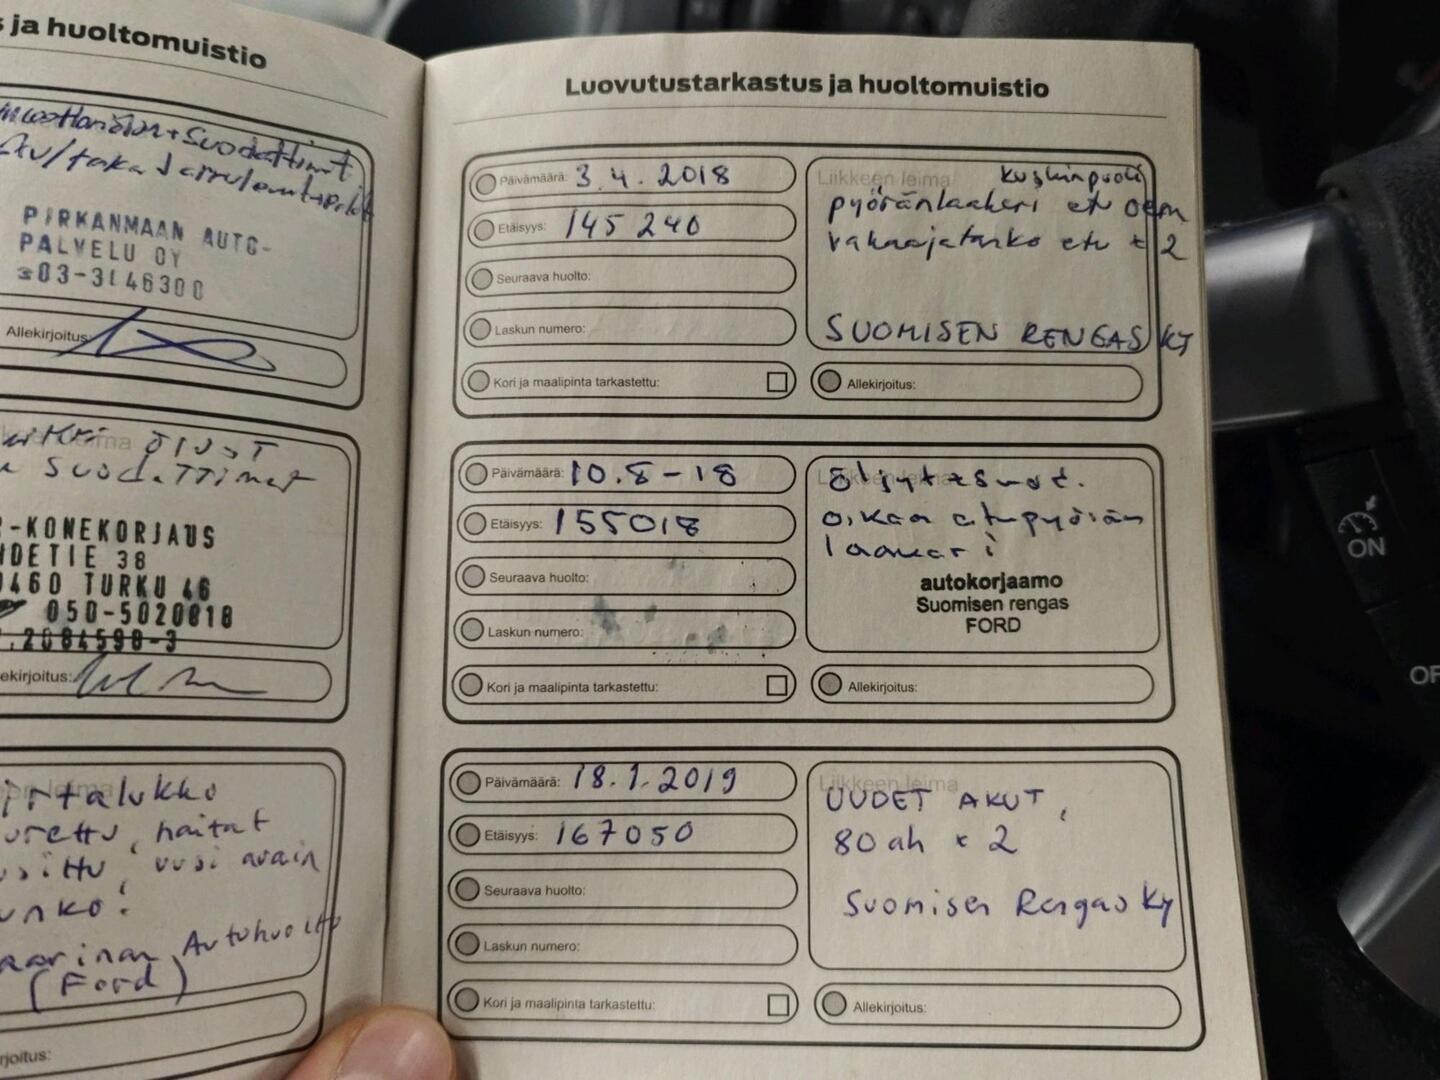 s ja huoltomuistio
+ Suodattimet
Etu/taka
PIRKANMAAN AUTO-
PALVELU OY
☎03-3146300
Allekirjoitus:
suodattimet
-KONEKORJAUS
38
TURKU 46
050-5020818
.2084598-3
ekirjoitus:
irtalukko
haitat
uusi avain
Autohuolto
(Ford)
rjoitus:
Luovutustarkastus ja huoltomuistio
Päivämäärä: 3.4.2018
Etäisyys: 145 240
Seuraava huolto:
Laskun numero:
Kori ja maalipinta tarkastettu:
Liikkeen leima
kuskinpuoli
pyöränlaakeri etu oem
etu x 2
SUOMISEN RENGAS KY
Allekirjoitus:
Päivämäärä: 10.8-18
Etäisyys: 155018
Seuraava huolto:
Laskun numero:
Kori ja maalipinta tarkastettu:
Liikkeen leima
oikea etupyörän
laakeri
autokorjaamo
Suomisen rengas
FORD
Allekirjoitus:
Päivämäärä: 18.1.2019
Etäisyys: 167050
Seuraava huolto:
Laskun numero:
Kori ja maalipinta tarkastettu:
Liikkeen leima
UUDET AKUT,
80 ah x 2
Suomisen Rengas Ky
Allekirjoitus:
ON
OF